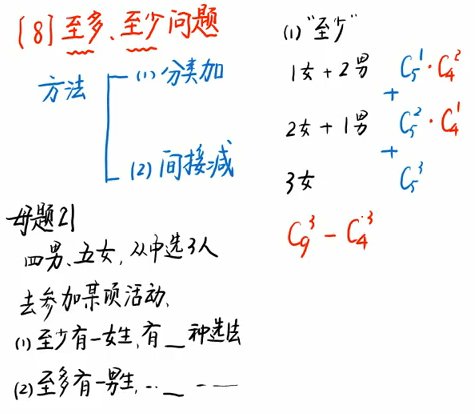 [8] 至多、至少问题
方法
(1) 分类加
(2) 间接减
母题21
四男、五女，从中选3人
去参加某项活动、
(1) 至少有一女生，有__种选法
(2) 至多有一男生，--__ - —
(1) "至少"
1女+2男 C₅¹·C₄²
+
2女+1男 C₅²·C₄¹
+
3女 C₅³
C₉³ - C₄³